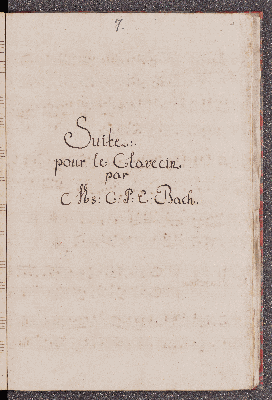 7.
Suite.
pour le Clavecin
par
Ms: C: P: E: Bach.